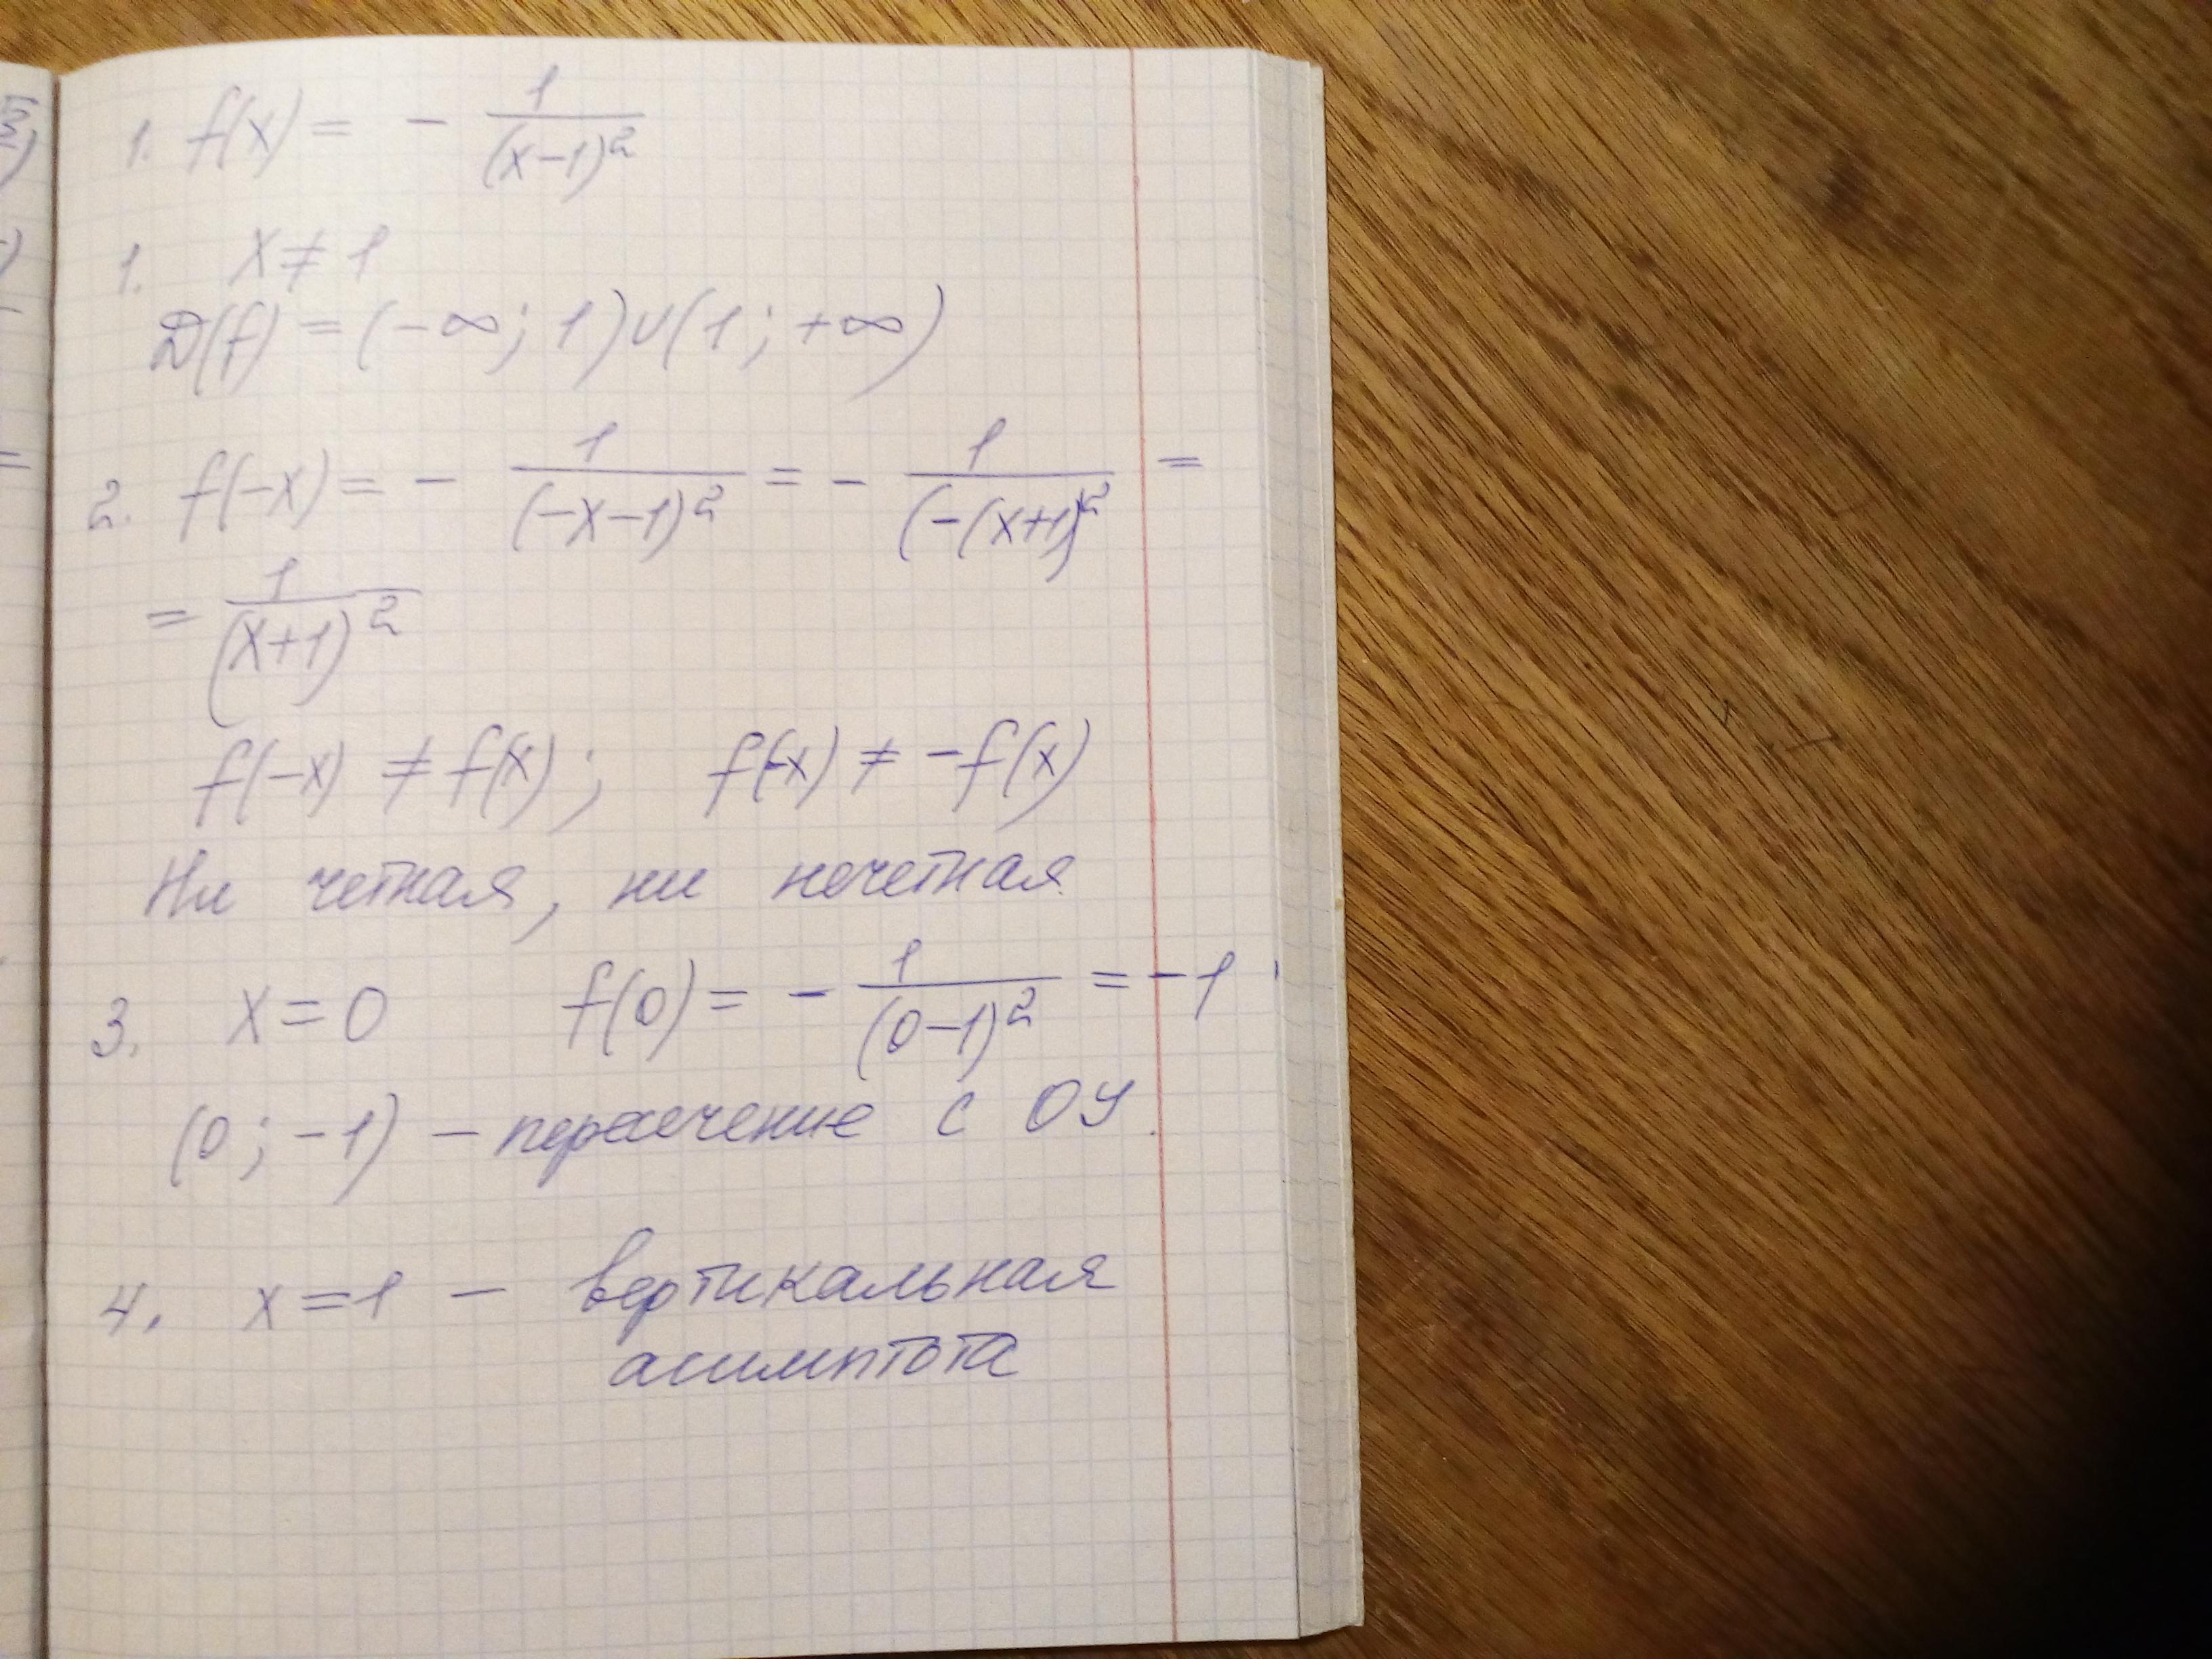 1. f(x) = - 1/(x-1)²
1. x ≠ 1
D(f) = (-∞; 1)∪(1; +∞)
2. f(-x) = - 1/(-x-1)² = - 1/(-(x+1)² =
= 1/(x+1)²
f(-x) ≠ f(x); f(-x) ≠ -f(x)
Ни четная, ни нечетная.
3. x = 0 f(0) = - 1/(0-1)² = -1
(0; -1) - пересечение с ОУ.
4. x = 1 - вертикальная
асимптота